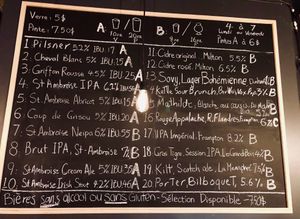 Verre: 5$
Pinte: 7.50$
A 12oz 20oz
B 9oz 16oz
4 à 7
Lundi au Vendredi
Pintes A à 6$
1 Pilsner 5.2% IBU.17 A
2. Cheval Blanc 5% IBU.15 A
3. Griffon Rousse 4.5% IBU.25 A
4. St-Ambroise IPA 6.2% A
5. St-Ambroise Abricot 5% IBU A
6. Coup de Grisou 5% IBU.20 A
7. St-Ambroise Neipa 6% IBU.55 B
8. Brut IPA, St-Ambroise 7% B
9. St-Ambroise Cream Ale 5% IBU A
10. St-Ambroise Irish Stout 4.2% IBU A
11. Cidre Milton, 5% B
12. Cidre rosé, Milton 6.5% B
13
14
15 Mathilde, Blanche
16 Rouge Appalache, R.Flandres
17 IPA Impérial, Frampton 8.2% B
18 Gros Tigre, Session, IPA
19. Kilt, Scotch ale, La Memphré 7.5%
20. Porter, Bilboquet, 5.6%
Bières sans alcool ou sans Gluten - Sélection Disponible -7.50$